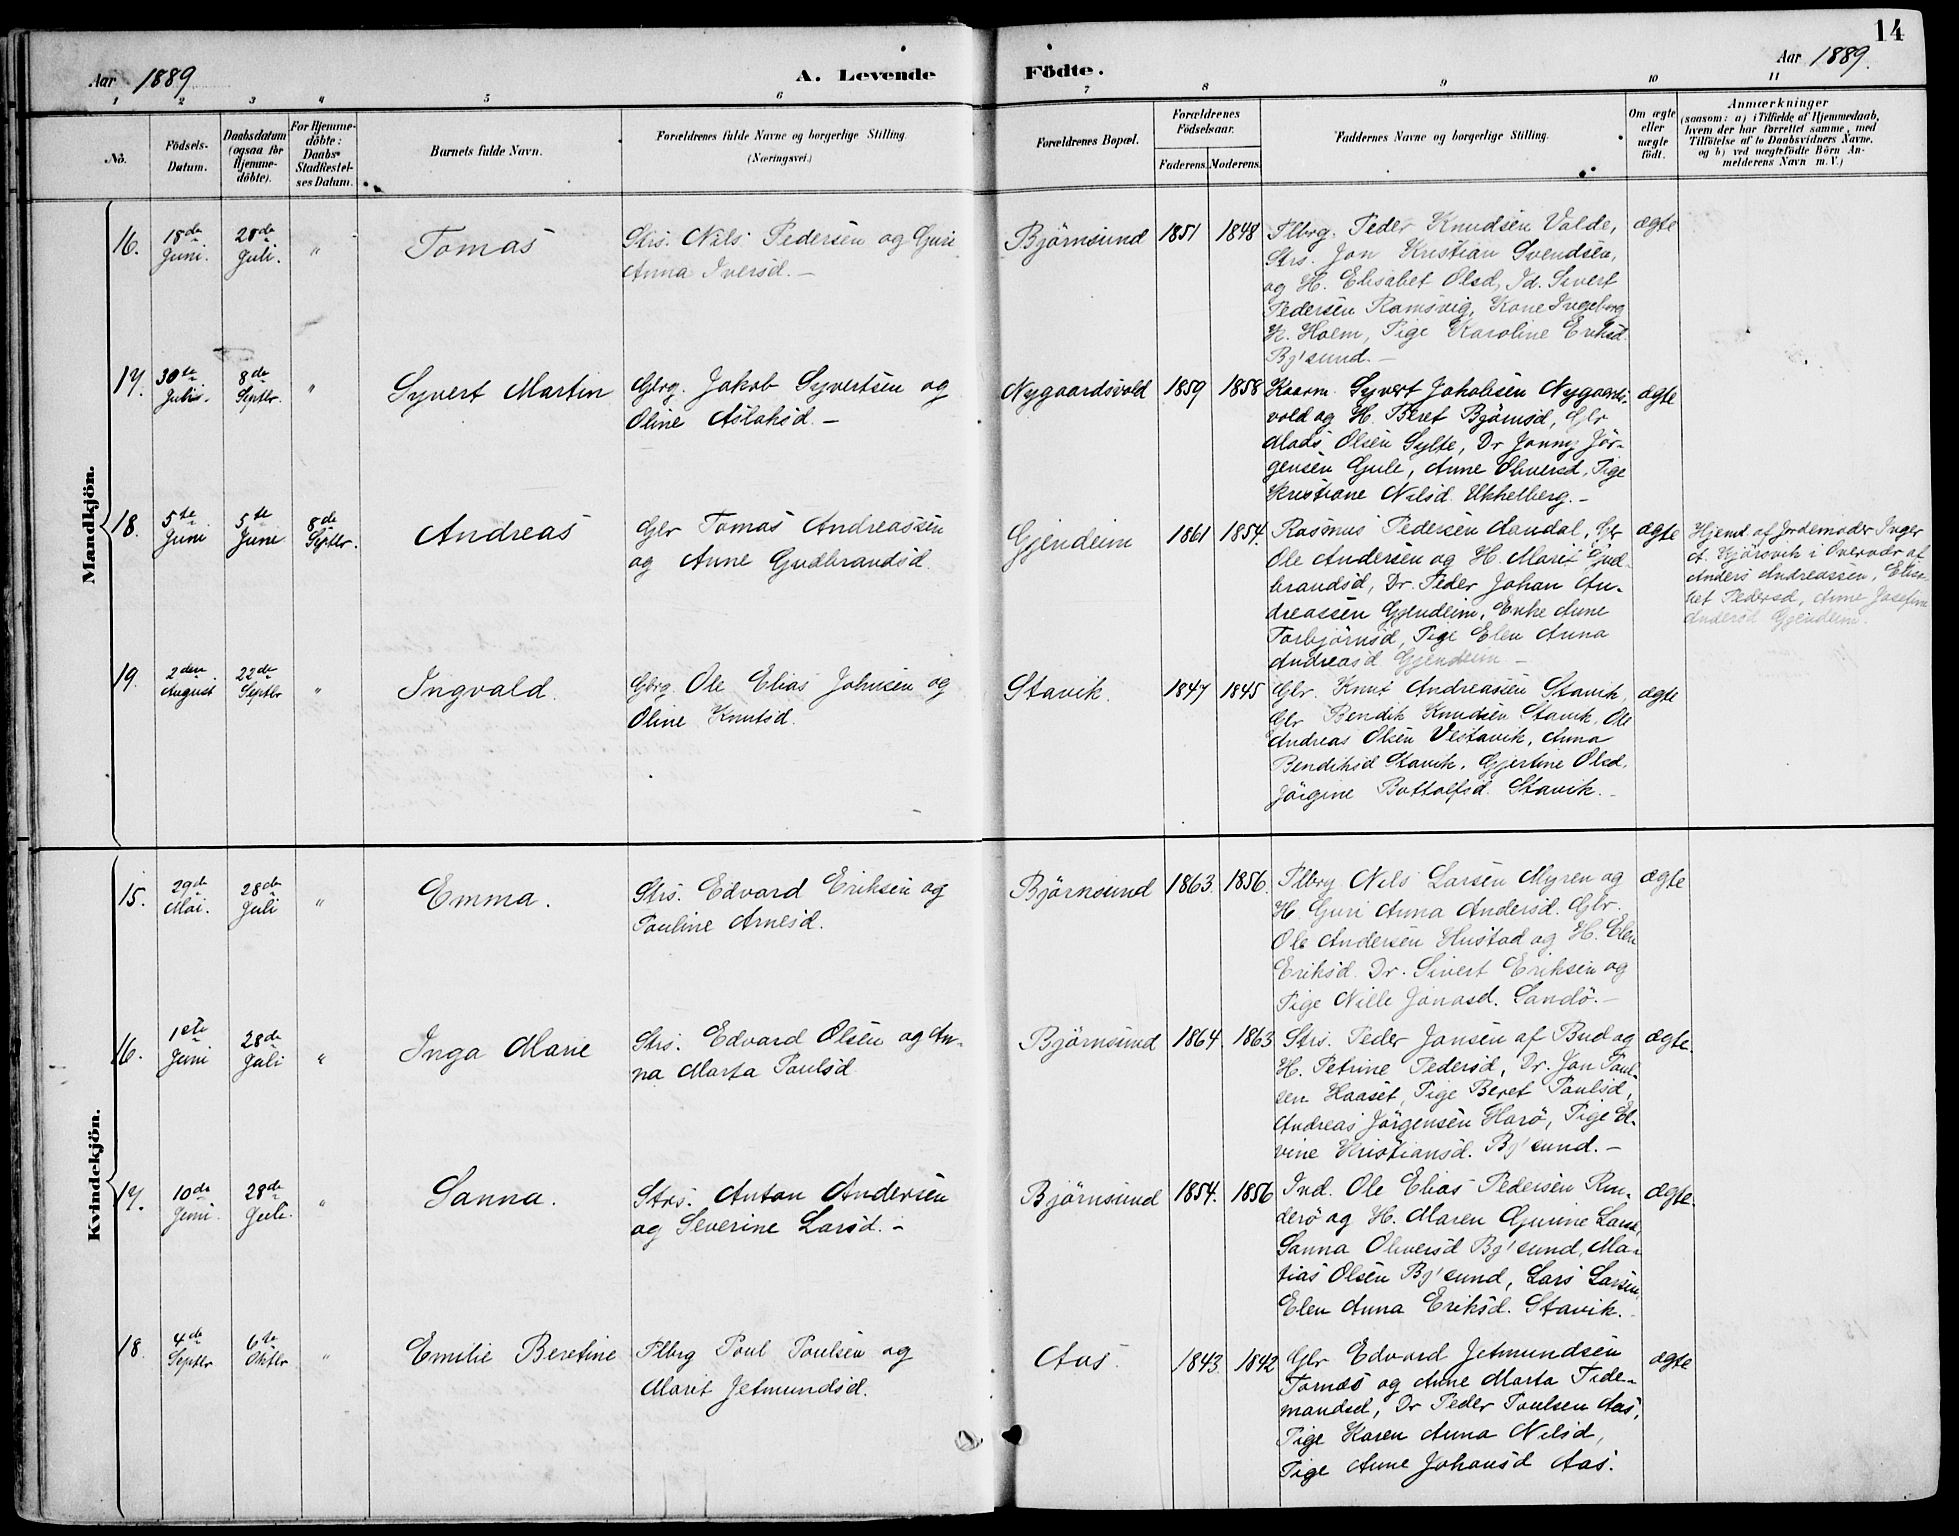 14
Aar 1889.
A. Levende
Födte.
Aar 1889.
1 2 3 4 5 6 7 8 9 10 11
No.
Födsels-
Datum.
Daabsdatum
(ogsaa for
Hjemme-
döbte).
For Hjemme-
döbte:
Daabs-
Stadfæstel-
ses Datum.
Barnets fulde Navn.
Forældrenes fulde Navne og borgerlige Stilling.
(Næringsvei.)
Forældrenes Bopæl.
Forældrenes
Födselsaar.
Faderens.
Moderens.
Faddernes Navne og borgerlige Stilling.
Om ægte
eller
uægte
födt.
Anmærkninger
(saasom: a) i Tilfælde af Hjemmedaab,
hvem der har forrettet samme, med
Tilföielse af to Daabsvidners Navne,
og b) ved uægtefödte Börn An-
melderens Navn m. V.)
Mandkjön.
16.
18de
Juni.
28de
Juli.
"
Tomas
Strs. Nils Pedersen og Guri
Anna Iversd. —
Björnsund
1851
1848
Plbrg. Peder Knudsen Valde,
Strs. Jon Kristian Svendsen,
og H. Elisabet Olsd, Id. Sivert
Pedersen Ramsvig, Kone Ingeborg
K. Holm, Pige Karoline Eriksd.
Bj'sund. —
ægte
17.
30te
Juli.
8de
Septbr.
"
Syvert Martin
Gbrg. Jakob Syvertsen og
Oline Aslaksd. —
Nygaardsvold
1859
1858
Kaarm. Syvert Jakobsen Nygaards-
vold og H. Beret Björnsd, Glr
Mads Olsen Sylte, Dr Jonny Jör-
gensen Gule, Anne Oliversd, Pige
Kristiane Nilsd. Ukkelberg. —
ægte
18.
5te
Juni
5te
Juni
8de
Septbr.
Andreas
Glr Tomas Andreassen
og Anne Gudbrandsd.
Gjendeim
1861
1854.
Rasmus Pedersen Aandal, Glr
Ole Andersen og H. Marit Gud-
brandsd, Dr. Peder Johan An-
dreassen Gjendeim, Enke Anne
Torbjörnsd, Pige Elen Anna
Andreasd Gjendeim —
ægte
Hjemd. af Jordemoder Inger
A. Kjörsvik i Overvær af
Anders Andreassen, Elisa-
bet Pedersd, Anne Josefine
Andersd Gjendeim.
19.
2den
August
22de
Septbr
"
Ingvald.
Gbrg. Ole Elias Johnsen og
Oline Knutsd.
Stavik.
1847
1845
Glr. Knut Andreassen Stavik,
Glr Bendik Knudsen Stavik, Ole
Andreas Olsen Vestavik, Anna
Bendiksd Stavik, Gjertine Olsd,
Jörgine Bottolfsd. Stavik. —
ægte
Kvindekjön.
15.
29de
Mai.
28de
Juli
"
Emma.
Strs. Edvard Eriksen og
Pauline Arnesd.
Björnsund
1863.
1856.
Plbrg Nils Larsen Myren og
H. Guri Anna Andersd. Glr.
Ole Andersen Hustad og H. Elen
Eriksd. Dr. Sivert Eriksen og
Pige Nille Jonasd. Sandö. —
ægte
16.
1ste
Juni
28de
Juli
"
Inga Marie
Strs. Edvard Olsen og An-
na Marta Paulsd
Björnsund
1864
1863
Strs. Peder Jansen af Bud og
H. Petrine Pedersd, Dr. Jon Paul-
sen Haaset, Pige Beret Paulsd,
Andreas Jörgensen Harö, Pige El-
vine Kristiansd. Bj'sund. —
ægte.
17.
10de
Juni.
28de
Juli.
"
Sanna.
Strs. Anton Andersen
og Severine Larsd. —
Björnsund
1854.
1856
Ind. Ole Elias Pedersen Ron-
derö og H. Maren Gurine Larsd,
Sanna Oliversd Bj'sund, Ma-
tias Olsen Bj'sund, Lars Larsen,
Elen Anna Eriksd. Stavik.
ægte.
18.
4de
Septbr
6te
Oktbr
"
Emilie Beretine
Plbrg Poul Poulsen og
Marit Jetmundsd.
Aas.
1843.
1842
Glr Edvard Jetmundsen
Tornæs og Anne Marta Tide-
mandsd, Dr Peder Poulsen Aas,
Pige Karen Anna Nilsd,
Pige Anne Johansd Aas.
ægte